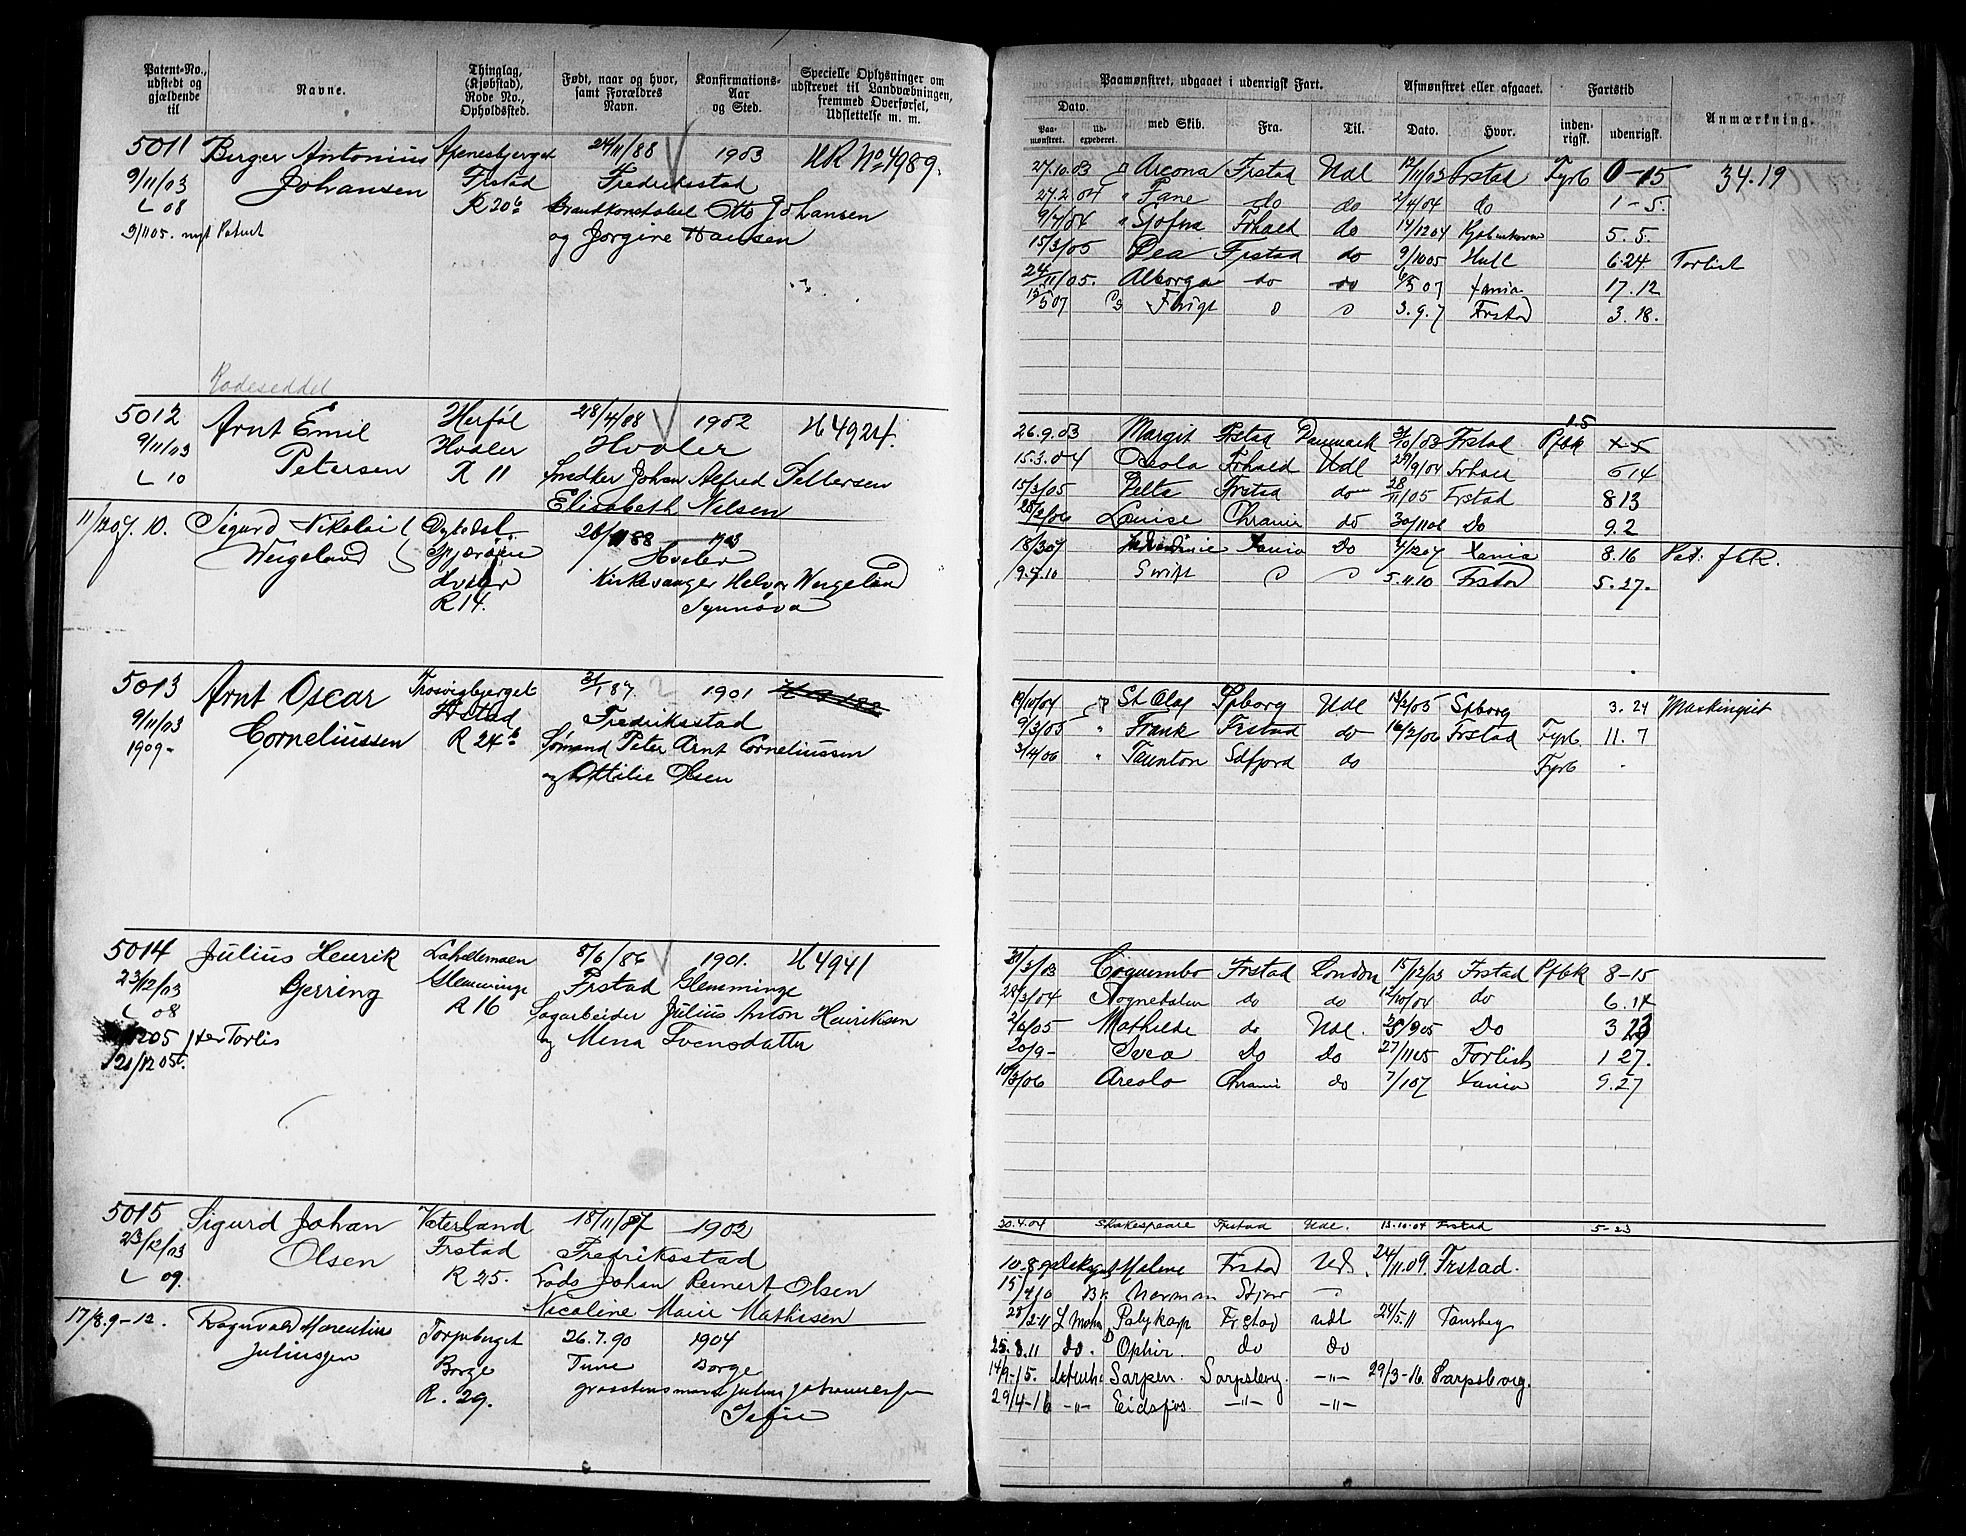 Patent-No., udstedt og gjældende til
Navne.
Thinglag, (Kjøbstad), Rode No., Opholdssted.
Født, naar og hvor, samt Forældres Navn.
Konfirmations-Aar og Sted.
Specielle Oplysninger om udskrevet til Landvæbningen, fremmed Overførsel, Udslettelse m. m.
Paamønstret, udgaaet i udenrigsk Fart.
Afmønstret eller afgaaet.
Fartstid
Anmærkning.
Dato.
Paa-mønstret.
Ud-expederet.
med Skib.
Fra.
Til.
Dato.
Hvor.
inden-rigsk.
udenrigsk.
5011 Berger Antonius Apenesbjerget 24/11/88 1903 UR No 4989.
9/11/03 Johansen Frstad Fredriksstad
L 08 R 20b Brandkonstabel Otto Johansen
9/1105. nyt Patent og Jørgine Hansen
27.10.03 " Arcona Frstad Udl 17/11/03 Frstad Fyrb 0-15 34.19
27.2 04 " Fane do do 2/4/04 do 1-5.
9/7/04 " Frhald do 14/1204 5.5.
15/3/05 Dea Frstad do 9/1005 Hull 6.24 Forlist
24/11/05. Alborga do do 6/5 07 Xania 17.12
13/5 07 3.9.7 Frstad 3.18.
Rodeseddel
5012 Arnt Emil Herføl 28/4/88 1902 U 4924.
9/11/03 Petersen Hvaler Hvaler
L 10 R 11 Johan Alfred Pettersen
Elisabeth Nilsen
26.9.03 Margit Frstad Danmark 31/10/03 Frstad Pfbk 15
15.3.04 Oseola Frhald Udl 29/9/04 Frhald 6 14
15/3/05 Delta Frstad do 28/11/05 Frstad 8 13
28/2/06 Louise Chrania do 30/1106 Do 9.2
11/1207. 10. Sigurd Nikolai Dybedal 1903
Weigeland Spjærøien Hvaler
Hvaler Kirkesanger Helvor Weigeland
R 14. Synnøva
18/3 07 Xania Do 4/1207 Xania 8.16
9.5.10 Swift 5.11.10 Frstad 5.27.
5013 Arnt Oscar Trosvigbjerget 31/1 87. 1901
9/11/03 Corneliussen Frstad Fredriksstad
1909- R 24b Sømand Peter Arnt Corneliussen
og Ottilie Olsen
19/10/04 St Olaf Spborg Udl 13/2/05 Spborg 3.24 Maskinpist
9/3/05 " Frank Frstad do 16/2/06 Frstad Fyrb. 11.7
3/4/06 " Taunton Sdfjord do Fyrb
5014 Julius Henrik Lahellemoen 8/6/86 1901. U 4941
23/12/03 Gjerring Glemminge Frstad Glemminge
L 08 R 16 Sagarbeider Julius Anton Henriksen
og Mina Svensdatter
1205 Forlis
21/12 05
20/3/03 Coquembo Frstad London 15/12/03 Frstad Pfbk 8-15
28/3/04 Sognedalen do do 12/10/04 do 6.14
2/6/05 Mathilde do Udl. 25/905 Do 3 23
20/9- Svea Do Do 27/1105 Forlist 1 27.
10/3/06 Areola Chrania do 7/107 Xania 9.27
5015 Sigurd Johan Vaterland 18/11/87 1902
23/12/03 Olsen Frstad Fredriksstad
L 09. R 25. Lods Johan Reinert Olsen
Nicoline Marie Mathisen
30.4.04 Shakespeare Frstad Udl. 13.10.04 Frstad 5-23
10.8.9 Malene Frstad Udl. 24/11.09. Frstad.
15/4 10 Norman
17/8.9-12. Ragnvald Torpeberget 26.7.90 1904
Juliussen Borge Tune Borge
R. 29.
28/2-11 Polykarp Frstad udl 24/5.11 Tønsberg
25.8.11 do. Ophir. do do
14/9-15. Sarpen. Sarpsborg. -"- 29/3-16. Sarpsborg.
29/4-16 -"- Eidsfos. -"- -"-